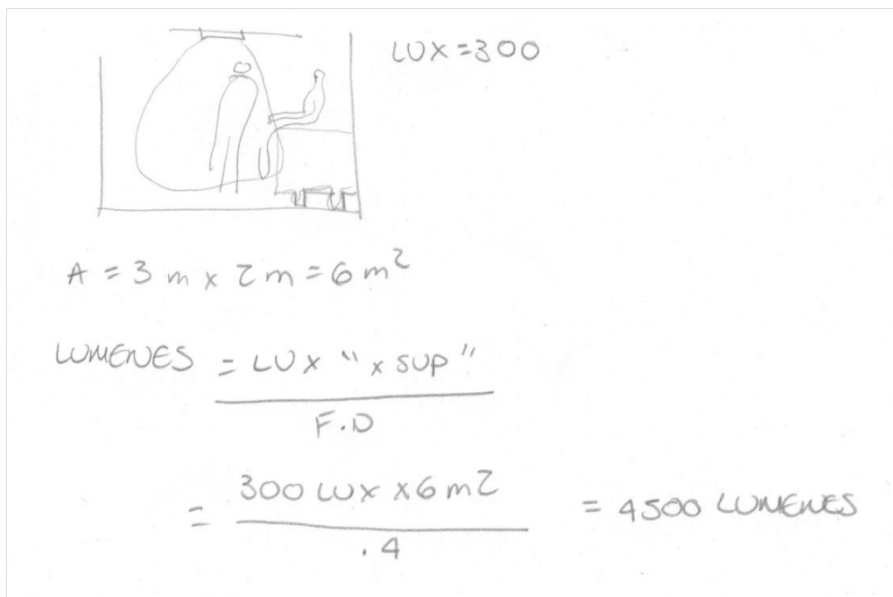 LUX = 300
A = 3 m x 2 m = 6 m²
LUMENES = LUX " x SUP "
F.D
= 300 LUX x 6 m2 = 4500 LUMENES
.4